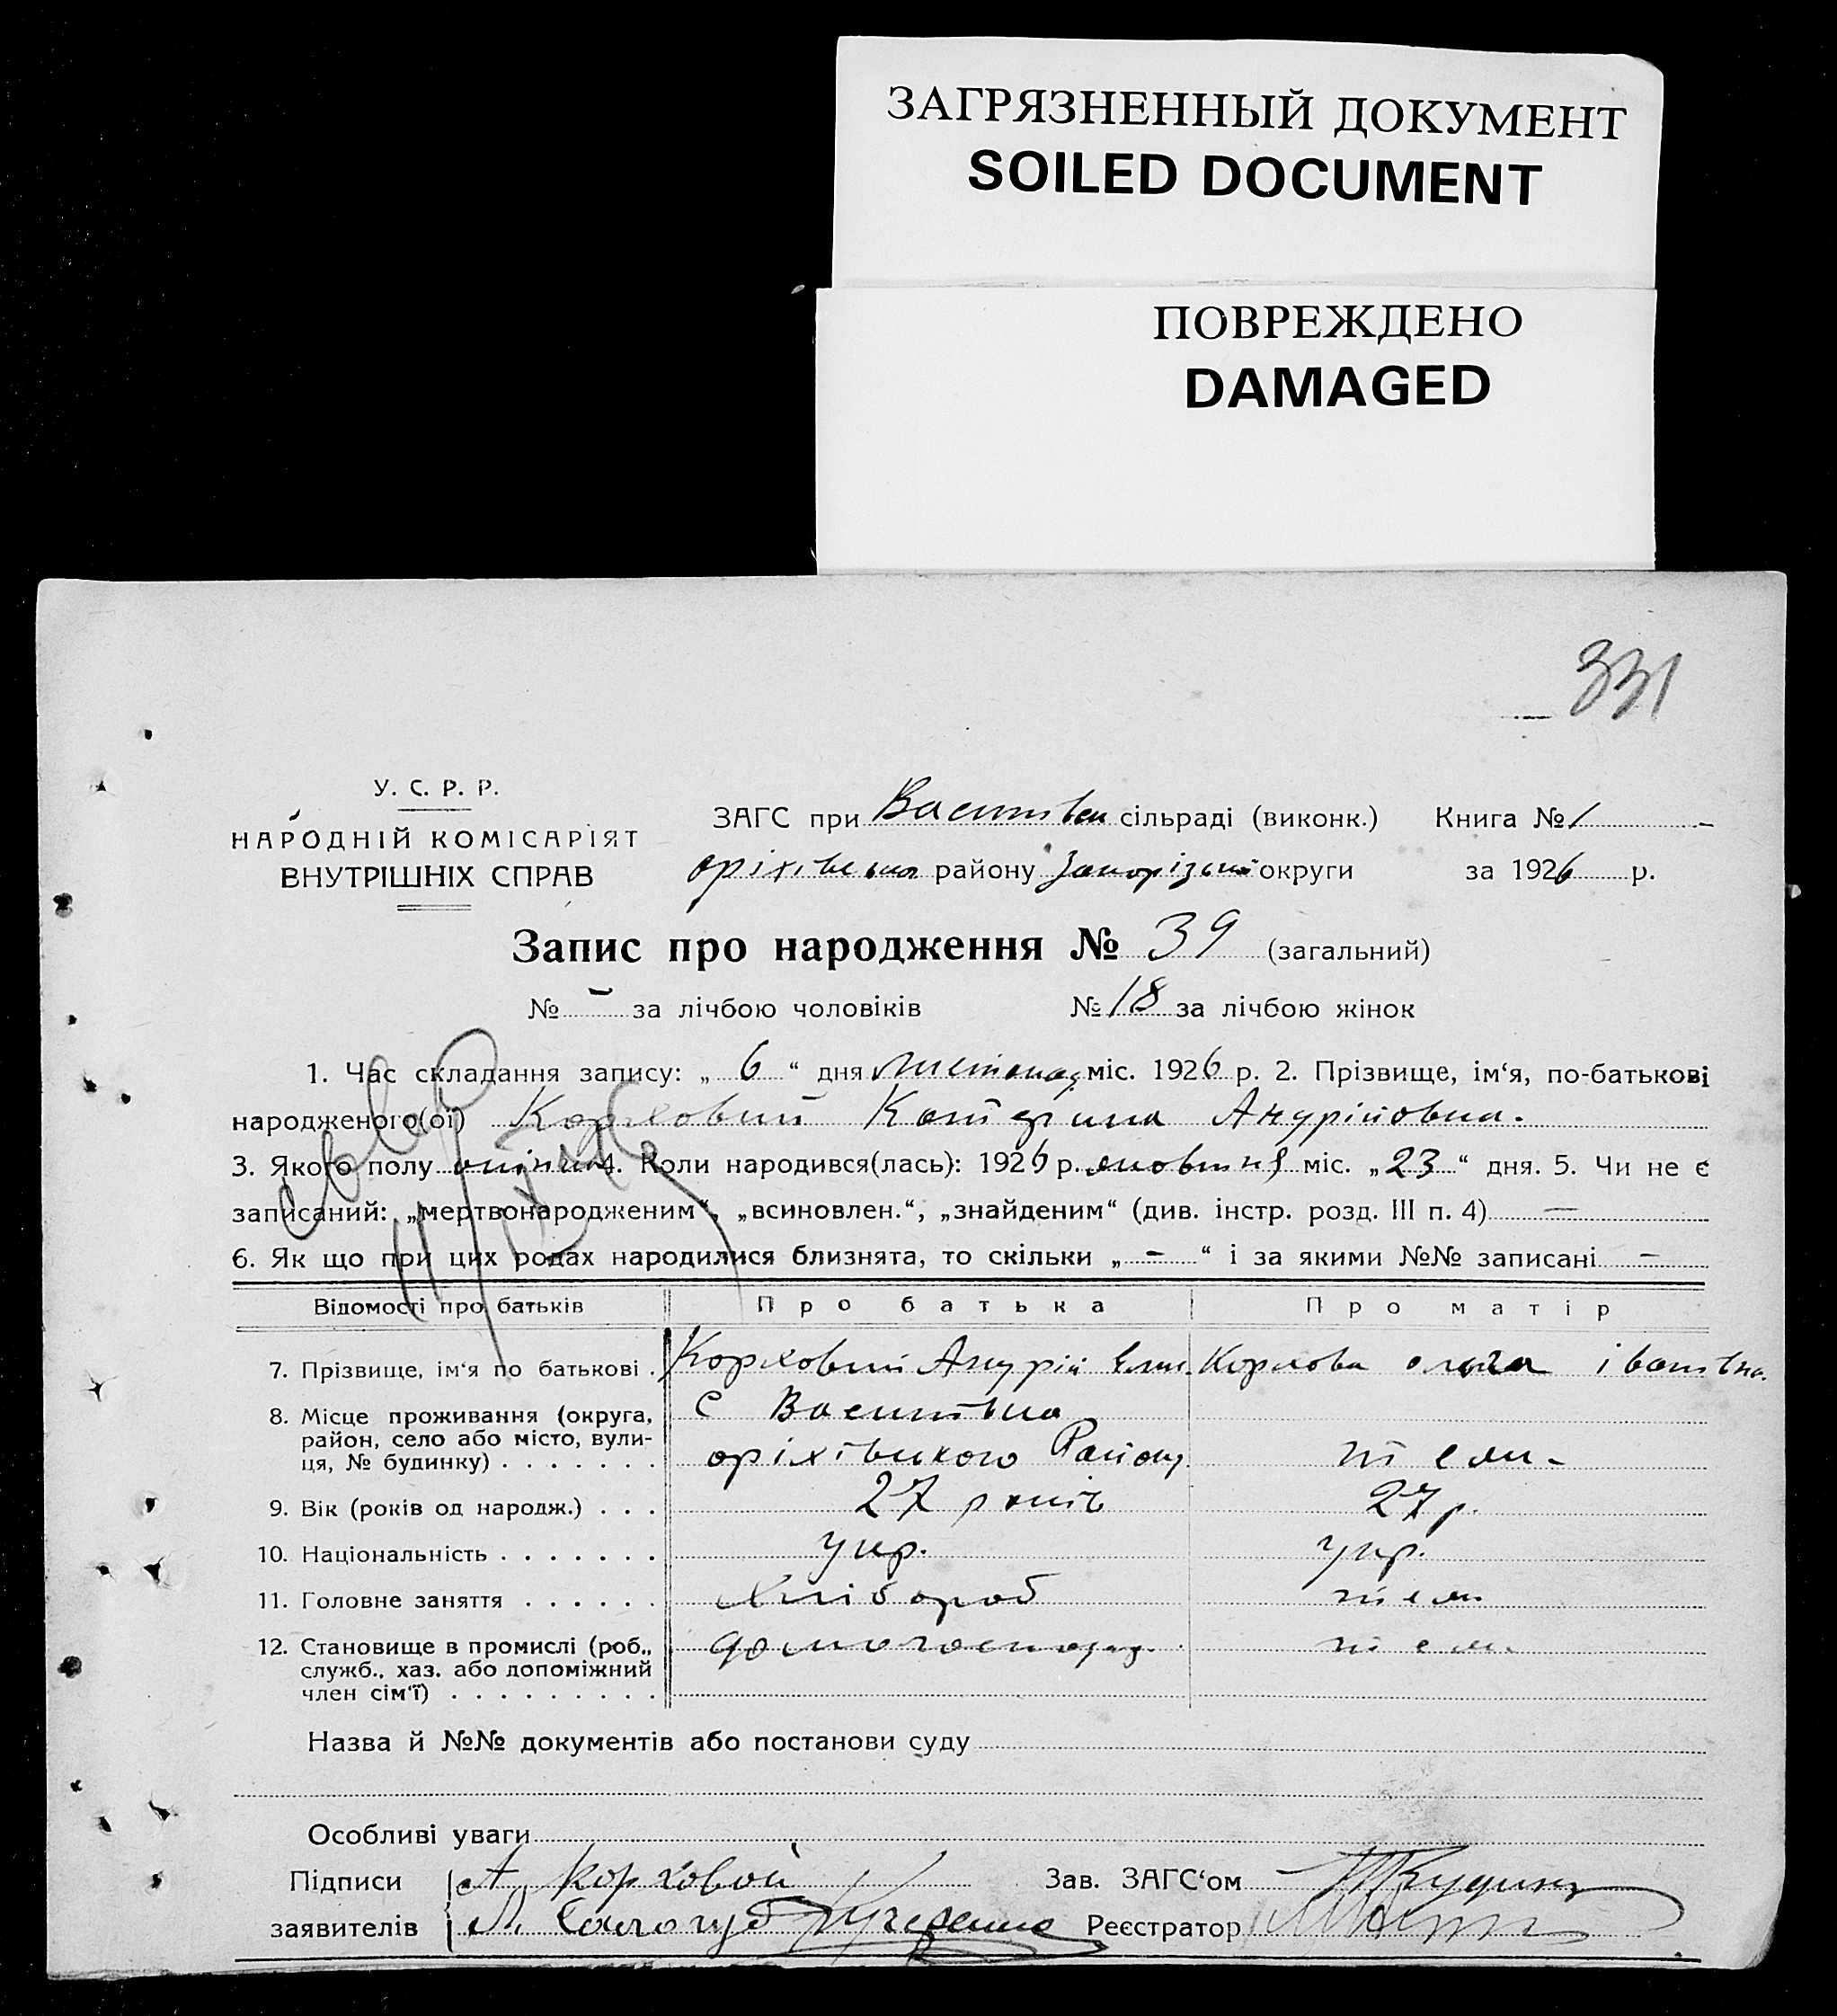 ЗАГРЯЗНЕННЫЙ ДОКУМЕНТ
SOILED DOCUMENT
ПОВРЕЖДЕНО
DAMAGED
331
У. С. Р. Р.
НАРОДНІЙ КОМІСАРІЯТ
ВНУТРІШНІХ СПРАВ
ЗАГС при сільраді (виконк.) Книга № 1
району округи за 1926 р.
Запис про народження № 39 (загальний)
№ - за лічбою чоловіків № 18 за лічбою жінок
1. Час складання запису: „ 6 “ дня листопад міс. 1926 р. 2. Прізвище, ім‘я, по-батькові
народженого(ої) Корховий Катерина Андрійовна.
3. Якого полу 4. Коли народився(лась): 1926 р. жовтня міс. „23“ дня. 5. Чи не є
записаний: „мертвонародженим“, „всиновлен.“, „знайденим“ (див. інстр. розд. III п. 4) —
6. Як що при цих родах народилися близнята, то скільки „ - “ і за якими №№ записані -
Відомості про батьків Про батька Про матір
7. Прізвище, ім‘я по батькові . Корховий Андрій Корхова ольга івановна.
8. Місце проживання (округа, район, село або місто, вулиця, № будинку) . . . . . . . с Василівка
оріхівського Району теж -
9. Вік (років од народж.) . . . 27 років 27 р.
10. Національність . . . . . . . укр. укр.
11. Головне заняття . . . . . . хлібороб теж
12. Становище в промислі (роб., служб., хаз. або допоміжний член сім‘ї) . . . . . . . . . домогосподар. теж.
Назва й №№ документів або постанови суду
Особливі уваги
Підписи А Корховой Зав. ЗАГС‘ом
заявителів Реєстратор